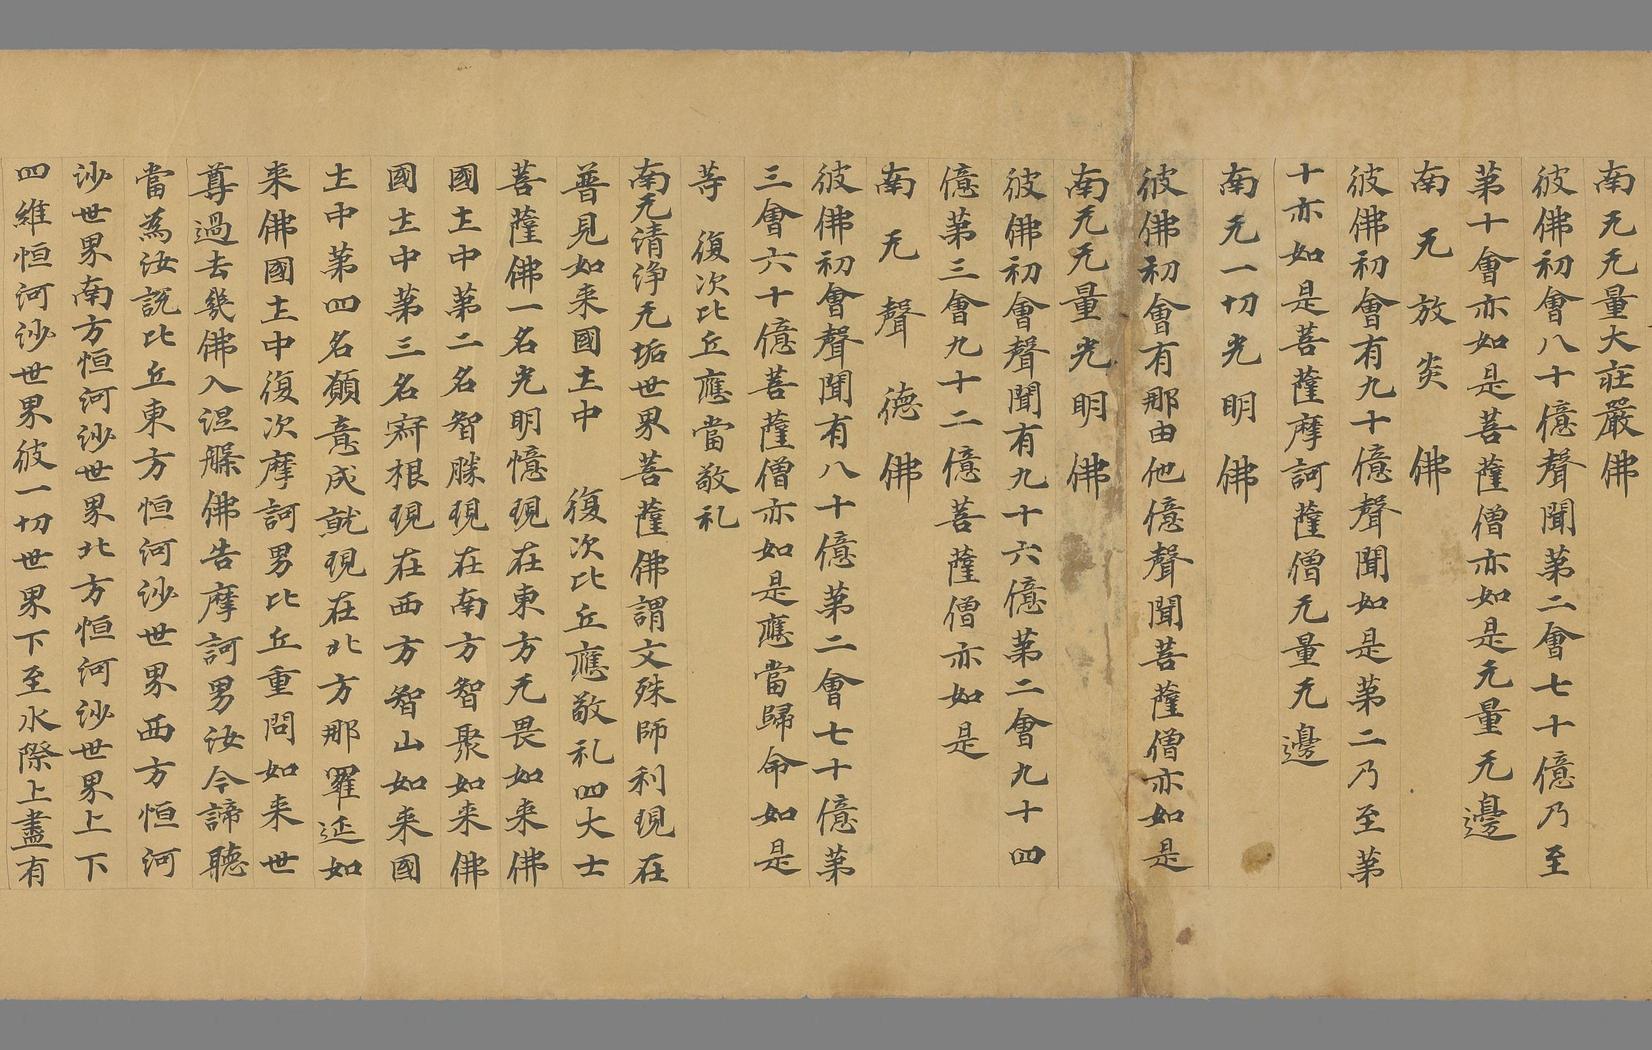 南无无量大莊嚴佛
彼佛初會八十億聲聞第二會七十億乃至
第十會亦如是菩薩僧亦如是无量无邊
南无放炎佛
彼佛初會有九十億聲聞如是第二乃至第
十亦如是菩薩摩訶薩僧无量无邊
南无一切光明佛
彼佛初會有那由他億聲聞菩薩僧亦如是
南无无量光明佛
彼佛初會聲聞有九十六億第二會九十四
億第三會九十二億菩薩僧亦如是
南无聲德佛
彼佛初會聲聞有八十億第二會七十億第
三會六十億菩薩僧亦如是應當歸命如是
等　復次比丘應當敬礼
南无清淨无垢世界菩薩佛謂文殊師利現在
普見如来國土中　復次比丘應敬礼四大士
菩薩佛一名光明憶現在東方无畏如来佛
國土中第二名智勝現在南方智聚如来佛
國土中第三名寂根現在西方智山如来國
土中第四名願意成就現在北方那羅延如
来佛國土中復次摩訶男比丘重問如来世
尊過去幾佛入涅槃佛告摩訶男汝今諦聽
當為汝說比丘東方恒河沙世界西方恒河
沙世界南方恒河沙世界北方恒河沙世界上下
四維恒河沙世界彼一切世界下至水際上盡有